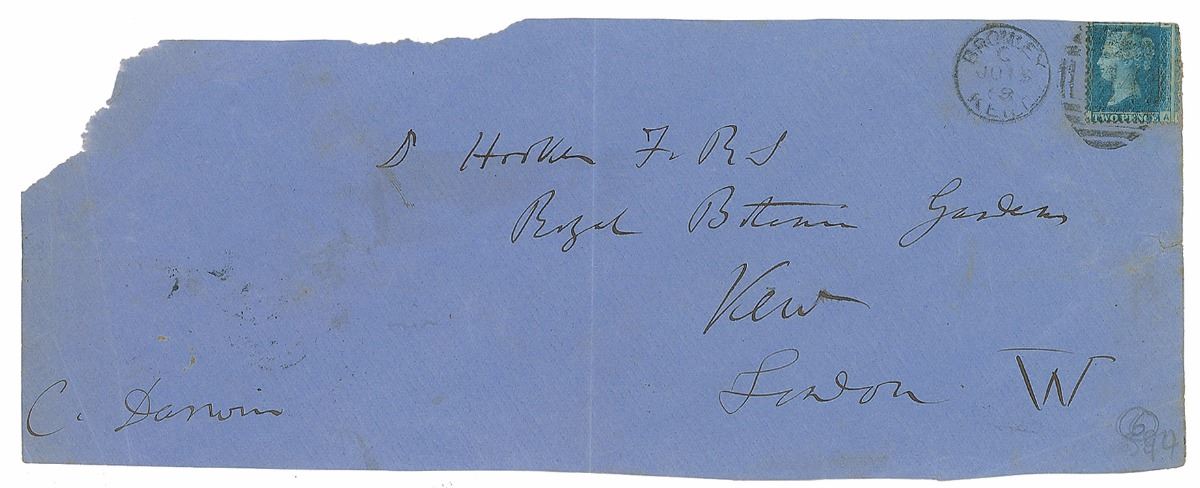 BROMLEY
C
KENT
TWO PENCE A
D Hooker F. R S
Royal Botanic Gardens
Kew
London W
C. Darwin
6